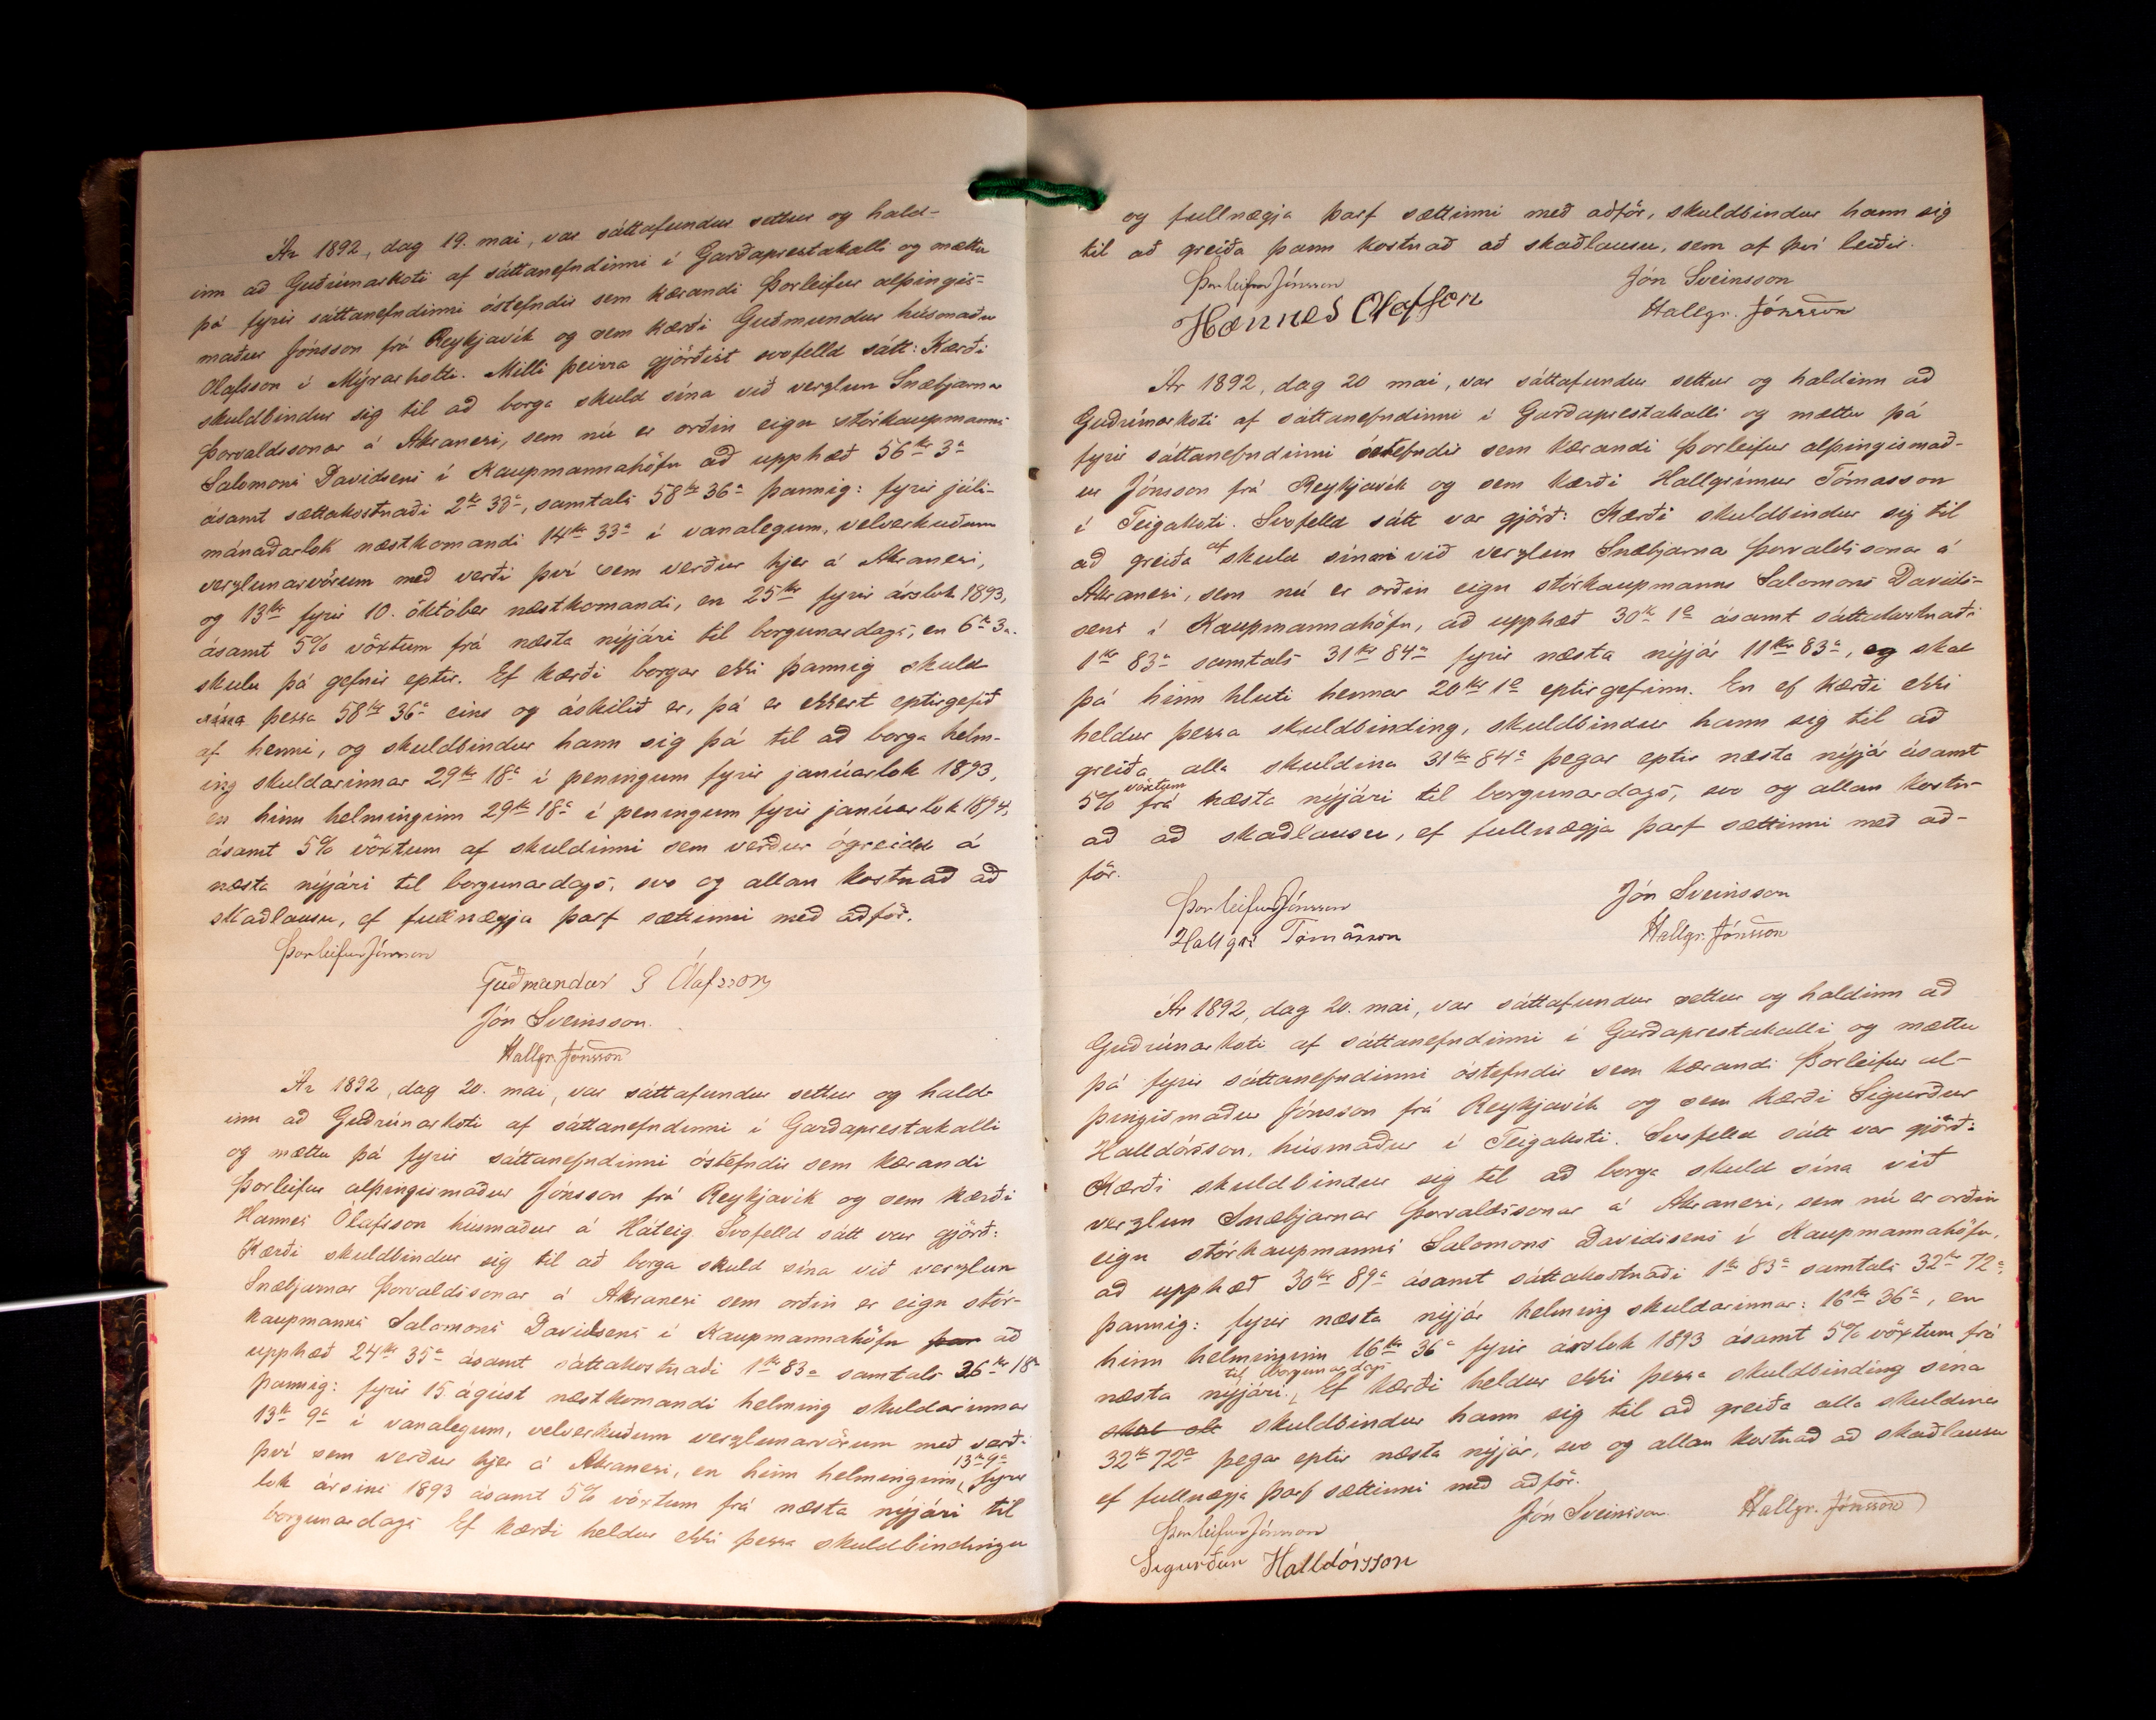 Ár 1892, dag 19. mai, var sáttafundur settur og hald-
inn að Guðrúnarkoti af sáttanefndinni í Garðaprestakalli og mættu
þá fyrir sáttanefndinni óstefndir sem kærandi Þorleifur alþingis-
maður Jónsson frá Reykjavík og sem kærði Guðmundur húsmaður
Ólafsson í Mýrarholti. Milli þeirra gjörðist svofelld sátt: Kærði
skuldbindur sig til að borga skuld sína við verzlun Snæbjarnar
Þorvaldssonar á Akranesi, sem nú er orðin eign stórkaupmanns
Salomons Davidsens í Kaupmannahöfn að upphæð 56 kr 3 a
ásamt sættakostnaði 2 kr 33 a, samtals 58 kr 36 a þannig: fyrir júlí-
mánaðarlok næstkomandi 14 kr 33 a í vanalegum, velverkuðum
verzlunarvörum með verði því sem verður hjer á Akranesi,
og 13 kr fyrir 10. október næstkomandi, en 25 kr fyrir árslok 1893,
ásamt 5% vöxtum frá næsta nýjári til borgunardags, en 6 kr 3 a.
skulu þá gefnir eptir. Ef kærði borgar ekki þannig skuld
þessa 58 kr 36 a eins og áskilið er, þá er ekkert eptirgefið
af henni, og skuldbindur hann sig þá til að borga helm-
ing skuldarinnar 29 kr 18 a í peningum fyrir janúarlok 1893,
en hinn helminginn 29 kr 18 a í peningum fyrir janúarlok 1894,
ásamt 5% vöxtum af skuldinni sem verður ógreidd á
næsta nýjári til borgunardags, svo og allan kostnað að
skaðlausu, ef fullnægja þarf sættinni með aðför.
Þorleifur Jónsson
Guðmundur G Ólafsson
Jón Sveinsson.
Hallgr. Jónsson
Ár 1892, dag 20. mai, var sáttafundur settur og hald-
inn að Guðrúnarkoti af sáttanefndinni í Garðaprestakalli
og mættu þá fyrir sáttanefndinni óstefndir sem kærandi
Þorleifur alþingismaður Jónsson frá Reykjavík og sem kærði
Hannes Ólafsson húsmaður á Háteig. Svofelld sátt var gjörð:
Kærði skuldbindur sig til að borga skuld sína við verzlun
Snæbjarnar Þorvaldssonar á Akranesi sem orðin er eign stór-
kaupmanns Salomons Davidsens í Kaupmannahöfn að
upphæð 24 kr 35 a ásamt sáttakostnaði 1 kr 83 a samtals 26 kr 18 a
þannig: fyrir 15 ágúst næstkomandi helming skuldarinnar
13 kr 9 a í vanalegum, velverkuðum verzlunarvörum með verði
því sem verður hjer á Akranesi, en hinn helminginn 13 kr 9 a fyrir
lok ársins 1893 ásamt 5% vöxtum frá næsta nýjári til
borgunardags Ef kærði heldur ekki þessa skuldbindingu
og fullnægja þarf sættinni með aðför, skuldbindur hann sig
til að greiða þann kostnað að skaðlausu, sem af því leiðir.
Þorleifur Jónsson Jón Sveinsson
Hannes Olafsson Hallgr. Jónsson
Ár 1892, dag 20 mai, var sáttafundur settur og haldinn að
Guðrúnarkoti af sáttanefndinni í Garðaprestakalli og mættu þá
fyrir sáttanefndinni óstefndir sem kærandi Þorleifur alþingismað-
ur Jónsson frá Reykjavík og sem kærði Hallgrímur Tómasson
í Teigakoti. Svofelld sátt var gjörð: Kærði skuldbindur sig til
að greiða af skuld sinni við verzlun Snæbjarnar Þorvaldssonar á
Akranesi, sem nú er orðin eign stórkaupmanns Salomons Davids-
sens í Kaupmannahöfn, að upphæð 30 kr 1 a ásamt sáttakostnaði
1 kr 83 a samtals 31 kr 84 a fyrir næsta nýjár 11 kr 83 a, og skal
þá hinn hluti hennar 20 kr 1 a eptirgefinn. En ef kærði ekki
heldur þessa skuldbinding, skuldbindur hann sig til að
greiða alla skuldina 31 kr 84 a þegar eptir næsta nýjár ásamt
5% vöxtum frá næsta nýjári til borgunardags, svo og allan kostn-
að að skaðlausu, ef fullnægja þarf sættinni með að-
för.
Þorleifur Jónsson Jón Sveinsson
Hallgr Tómásson Hallgr. Jónsson
Ár 1892, dag 20. mai, var sáttafundur settur og haldinn að
Guðrúnarkoti af sáttanefndinni í Garðaprestakalli og mættu
þá fyrir sáttanefndinni óstefndir sem kærandi Þorleifur al-
þingismaður Jónsson frá Reykjavík og sem kærði Sigurður
Halldórsson, húsmaður í Teigakoti. Svofelld sátt var gjörð:
Kærði skuldbindur sig til að borga skuld sína við
verzlun Snæbjarnar Þorvaldssonar á Akranesi, sem nú er orðin
eign stórkaupmanns Salomons Davidsens í Kaupmannahöfn,
að upphæð 30 kr 89 a ásamt sáttakostnaði 1 kr 83 a samtals 32 kr 72 a
þannig: fyrir næsta nýjár helming skuldarinnar: 16 kr 36 a, en
hinn helminginn 16 kr 36 a fyrir árslok 1893 ásamt 5% vöxtum frá
næsta nýjári til borgunardags. Ef kærði heldur ekki þessa skuldbinding sína
skuldbindur hann sig til að greiða alla skuldina
32 kr 72 a þegar eptir næsta nýjár, svo og allan kostnað að skaðlausu
ef fullnægja þarf sættinni með aðför.
Þorleifur Jónsson Jón Sveinsson. Hallgr. Jónsson
Sigurður Halldórsson